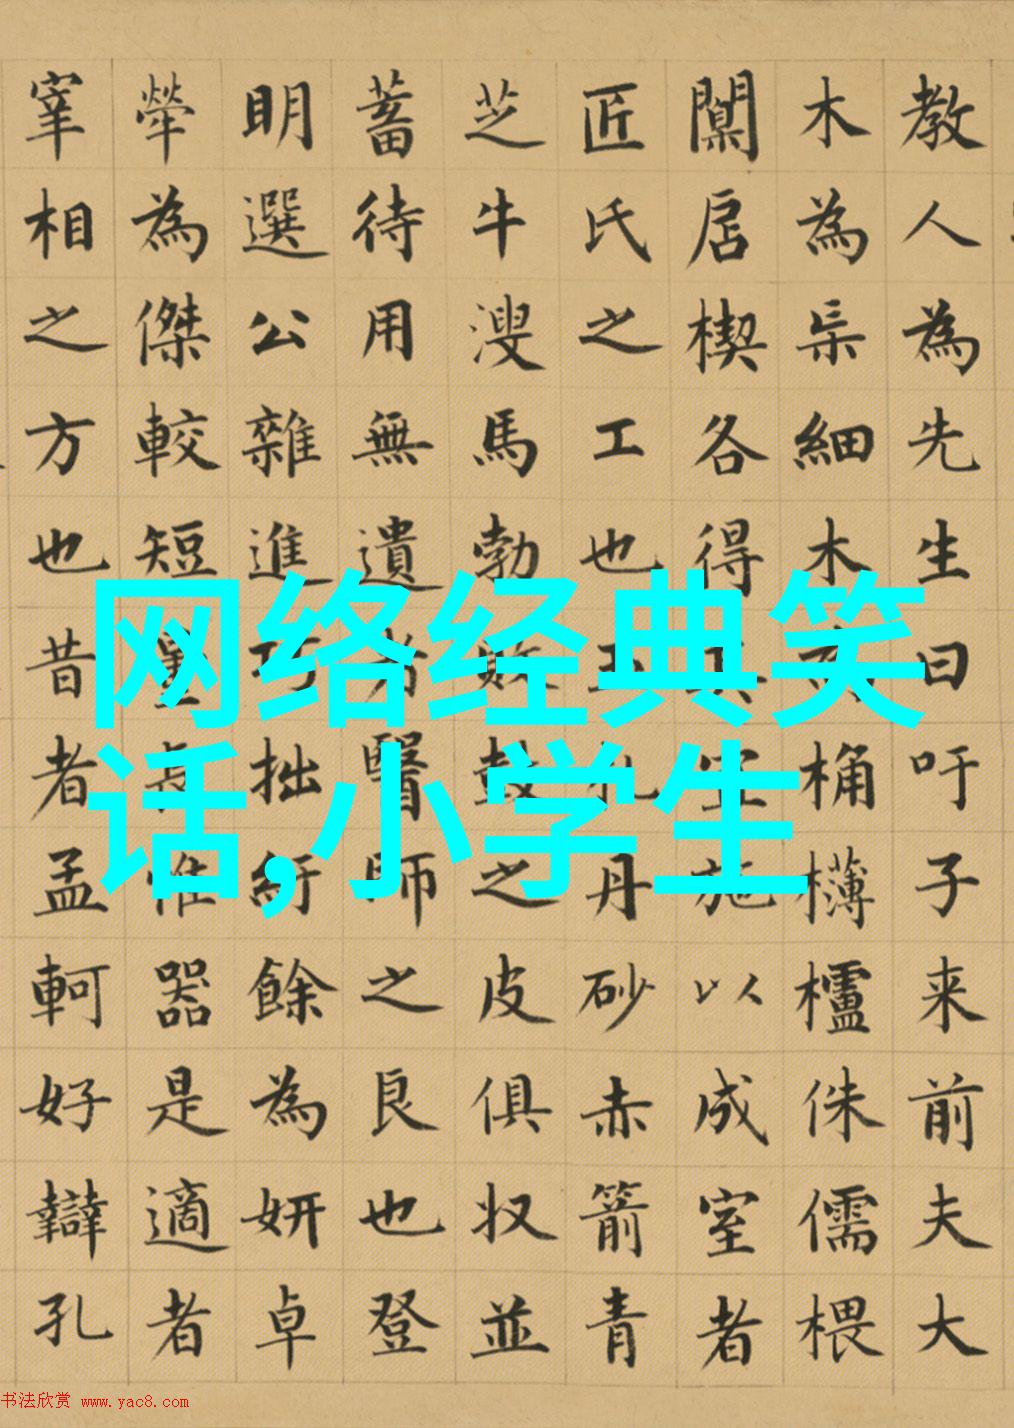 教人為先生曰吁子来前夫大
木為杗細木桷欂櫨侏儒椳
闑扂楔各得其宜施以成室者
匠氏之工也玉札丹砂赤箭青
芝牛溲馬勃敗鼓之皮俱收並
蓄待用無遺者醫師之良也登
明選公雜進巧拙紆餘為妍卓
犖為傑較短量長惟器是適者
宰相之方也昔者孟軻好辯孔
网络经典笑
话,小学生
书法欣赏 www.yac8.com